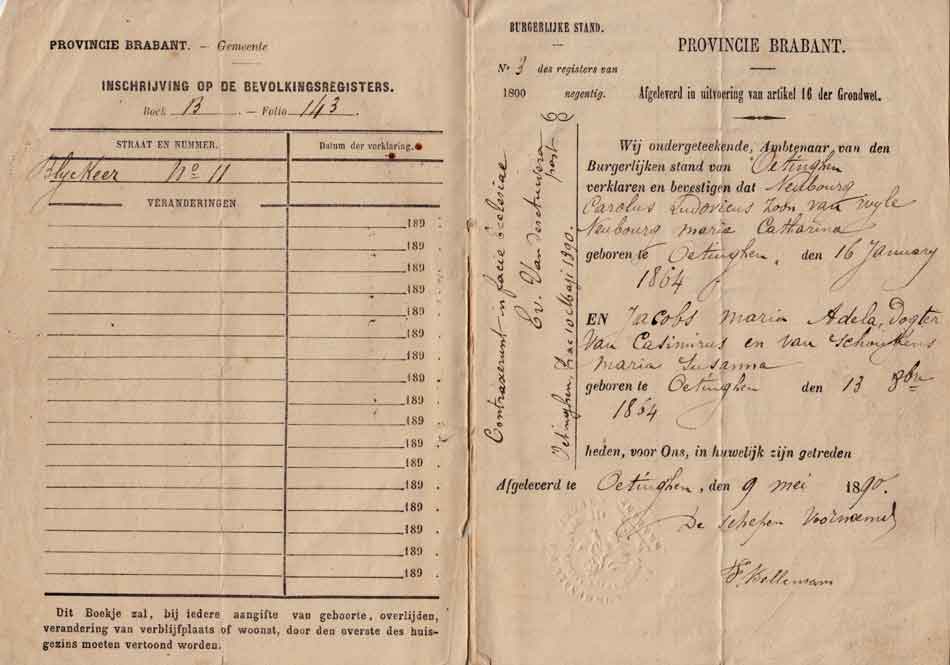 PROVINCIE BRABANT. — Gemeente
INSCHRIJVING OP DE BEVOLKINGSREGISTERS.
Boek B. — Folio 143.
STRAAT EN NUMMER.
Datum der verklaring.
Blyckeer No 11
VERANDERINGEN
189 .
189 .
189 .
189 .
189 .
189 .
189 .
189 .
189 .
189 .
189 .
189 .
189 .
189 .
189 .
189 .
189 .
Dit Boekje zal, bij iedere aangifte van geboorte, overlijden,
verandering van verblijfplaats of woonst, door den overste des huis-
gezins moeten vertoond worden.
BURGERLIJKE STAND.
No 3 des registers van
1800 negentig.
Contraxerunt in facie Ecclesiae
Ev. Van
past
Oetinghen, hac 10 Maji 1890.
PROVINCIE BRABANT.
Afgeleverd in uitvoering van artikel 16 der Grondwet.
Wij ondergeteekende, Ambtenaar van den
Burgerlijken stand van Oetinghen
verklaren en bevestigen dat Neubourg
Carolus Ludovicus zoon van wyle
Neubourg Maria Catharina
geboren te Oetinghen, den 16 January
1864
EN Jacobs Maria Adela, Dogter
Van Casimirus en van
Maria Susanna
geboren te Oetinghen den 13 8bre
1864
heden, voor Ons, in huwelijk zijn getreden
Afgeleverd te Oetinghen, den 9 mei 1890.
De schepen Voornoemd